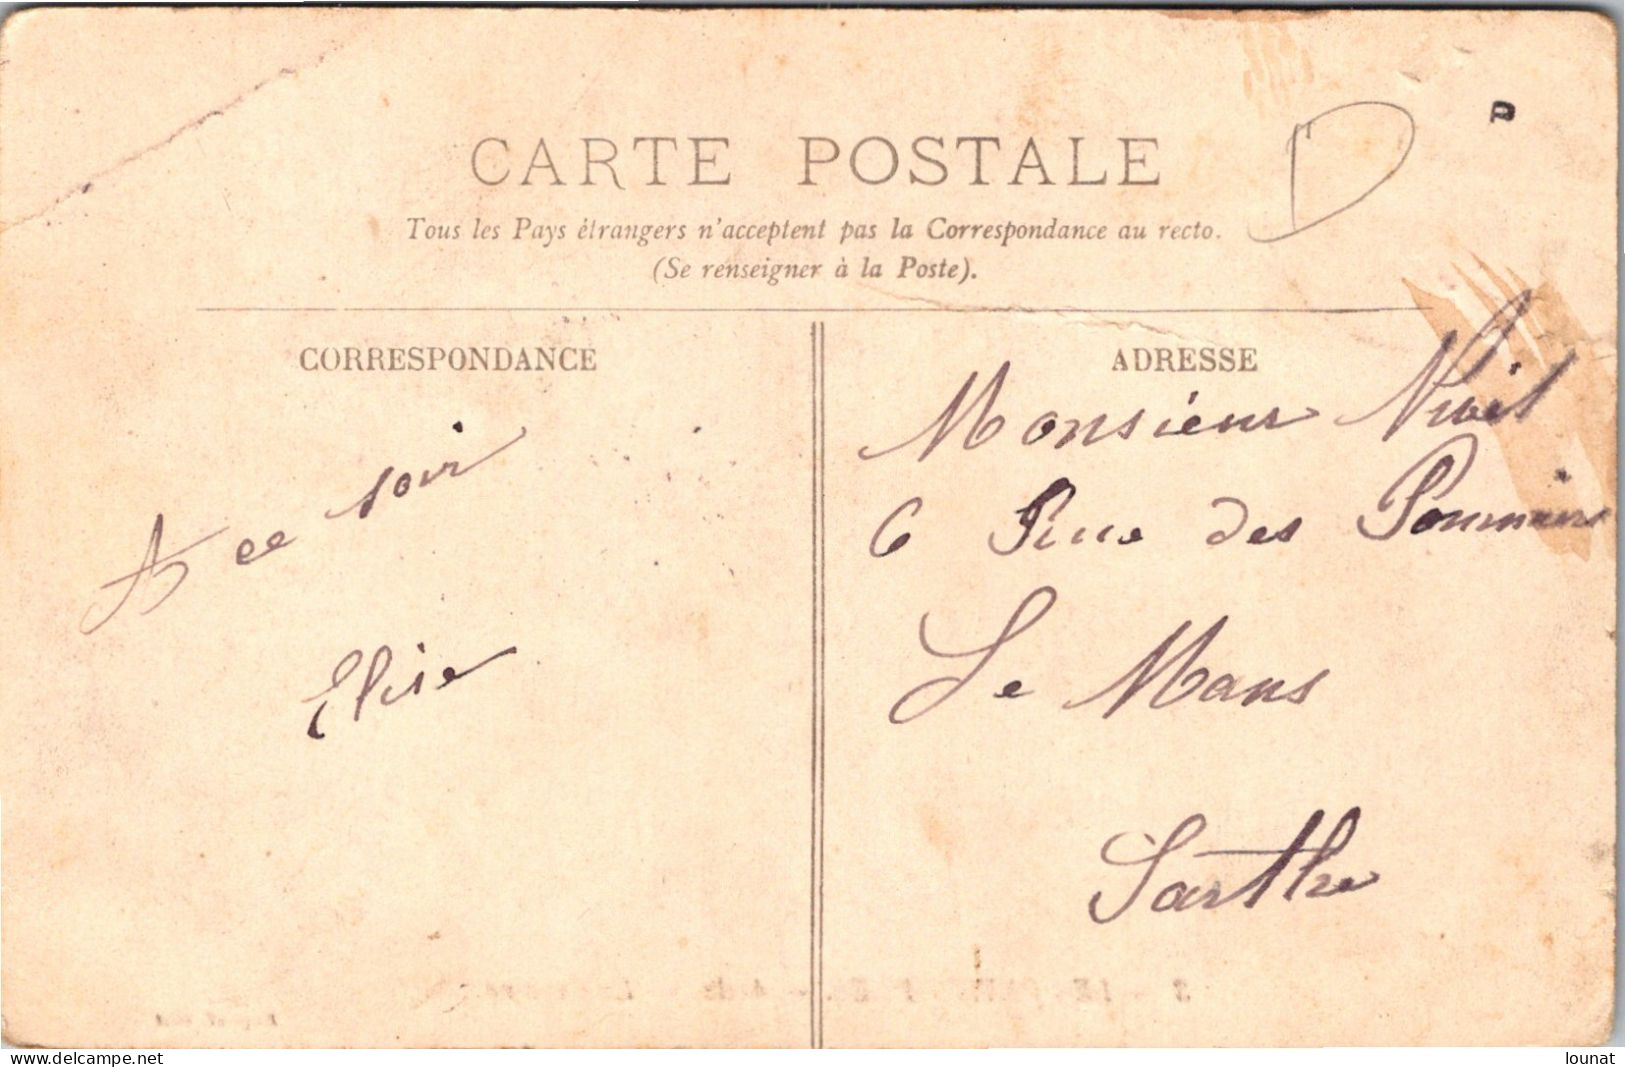 CARTE POSTALE
Tous les Pays étrangers n'acceptent pas la Correspondance au recto.
(Se renseigner à la Poste).
CORRESPONDANCE
A ce soir
Elise
ADRESSE
Monsieur
6 Rue des
Le Mans
Sarthe
D
delcampe.net
lounat